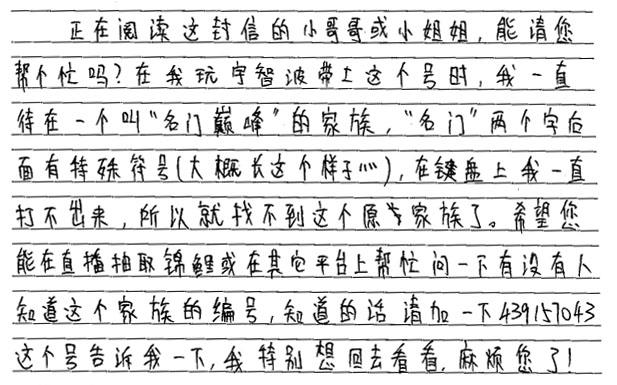 正在阅读这封信的小哥哥或小姐姐，能请您
帮个忙吗？在我玩宇智波带土这个号时，我一直
待在一个叫“名门巅峰”的家族，“名门”两个字后
面有特殊符号（大概长这个样子灬），在键盘上我一直
打不出来，所以就找不到这个原来家族了。希望您
能在直播抽取锦鲤或在其它平台上帮忙问一下有没有人
知道这个家族的编号，知道的话请加一下439157043
这个号告诉我一下，我特别想回去看看，麻烦您了！